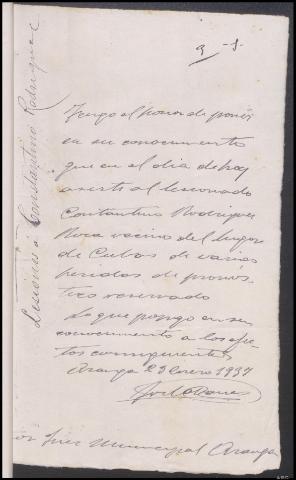 Lesiones á Constantino Rodriguez
Tengo el honor de poner
en su conocimiento
que en el dia de hoy
asisti al lesionado
Constantino Rodriguez
Roca vecino del lugar
de Cubas de varias
heridas de pronos-
tico reservado
Lo que pongo en su
conocimiento a los efe-
tos consiguientes
Aranga 29 Enero 1937
Juez Municipal Aranga